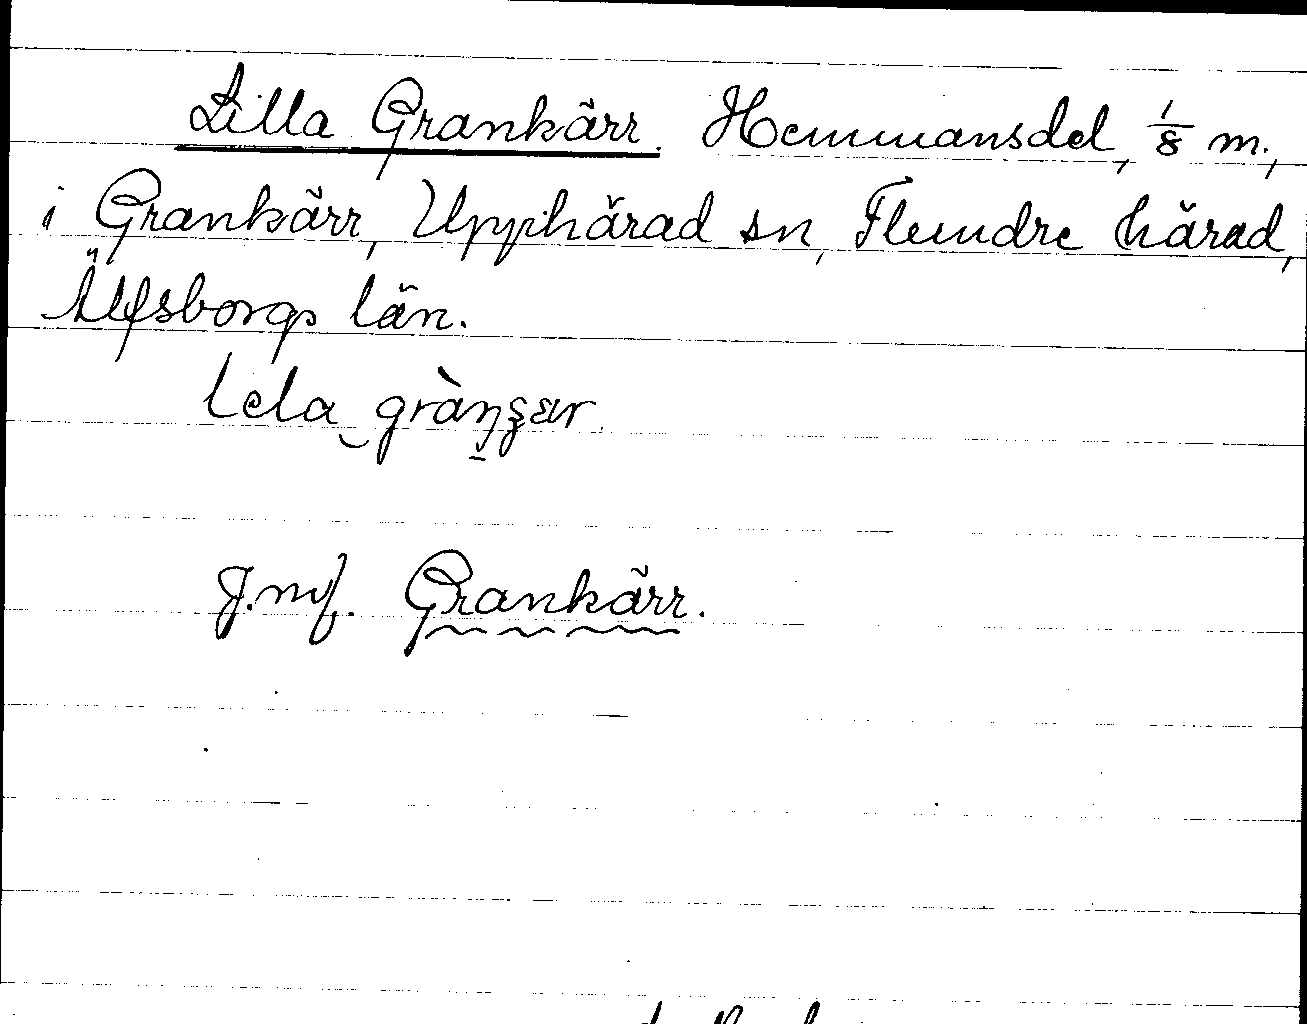 Lilla Grankärr. Hemmansdel, 1/8 m.,
i Grankärr, Upphärad sn, Flundre härad,
Älfsborgs län.
lela gràŋʒær
J.mf. Grankärr.